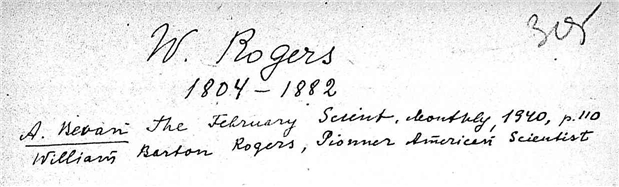 305
W. Rogers
1804 – 1882
A. Bevan The February Scient. Monthly, 1940, p. 110
William Barton Rogers, Pionner American Scientist